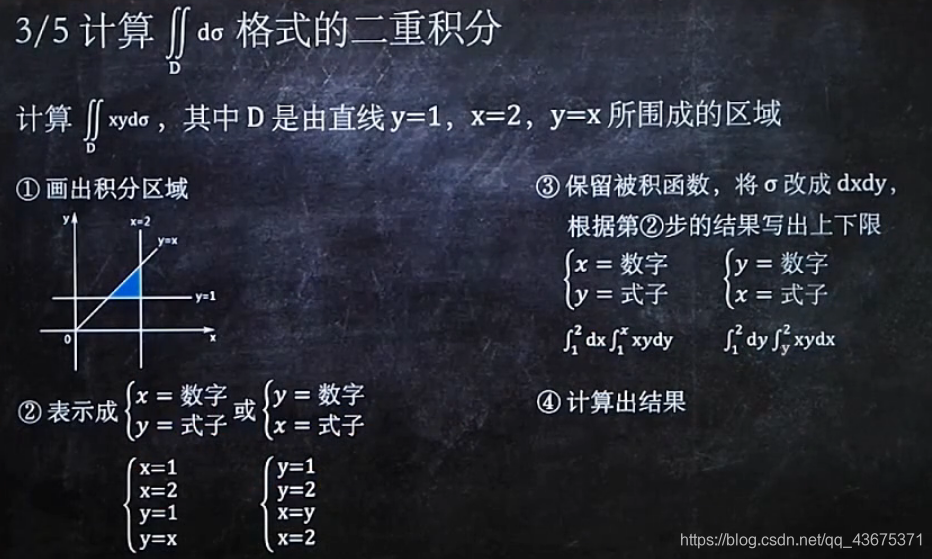 3/5 计算 ∬ dσ 格式的二重积分
D
计算 ∬ xydσ ，其中 D 是由直线 y=1，x=2，y=x 所围成的区域
D
① 画出积分区域
y
x=2
y=x
y=1
0
x
② 表示成 { x = 数字 或 { y = 数字
y = 式子 x = 式子
x=1 y=1
x=2 y=2
y=1 x=y
y=x x=2
③ 保留被积函数，将 σ 改成 dxdy，
根据第②步的结果写出上下限
{ x = 数字 { y = 数字
y = 式子 x = 式子
∫₁² dx ∫₁ˣ xydy ∫₁² dy ∫ᵧ² xydx
④ 计算出结果
https://blog.csdn.net/qq_43675371